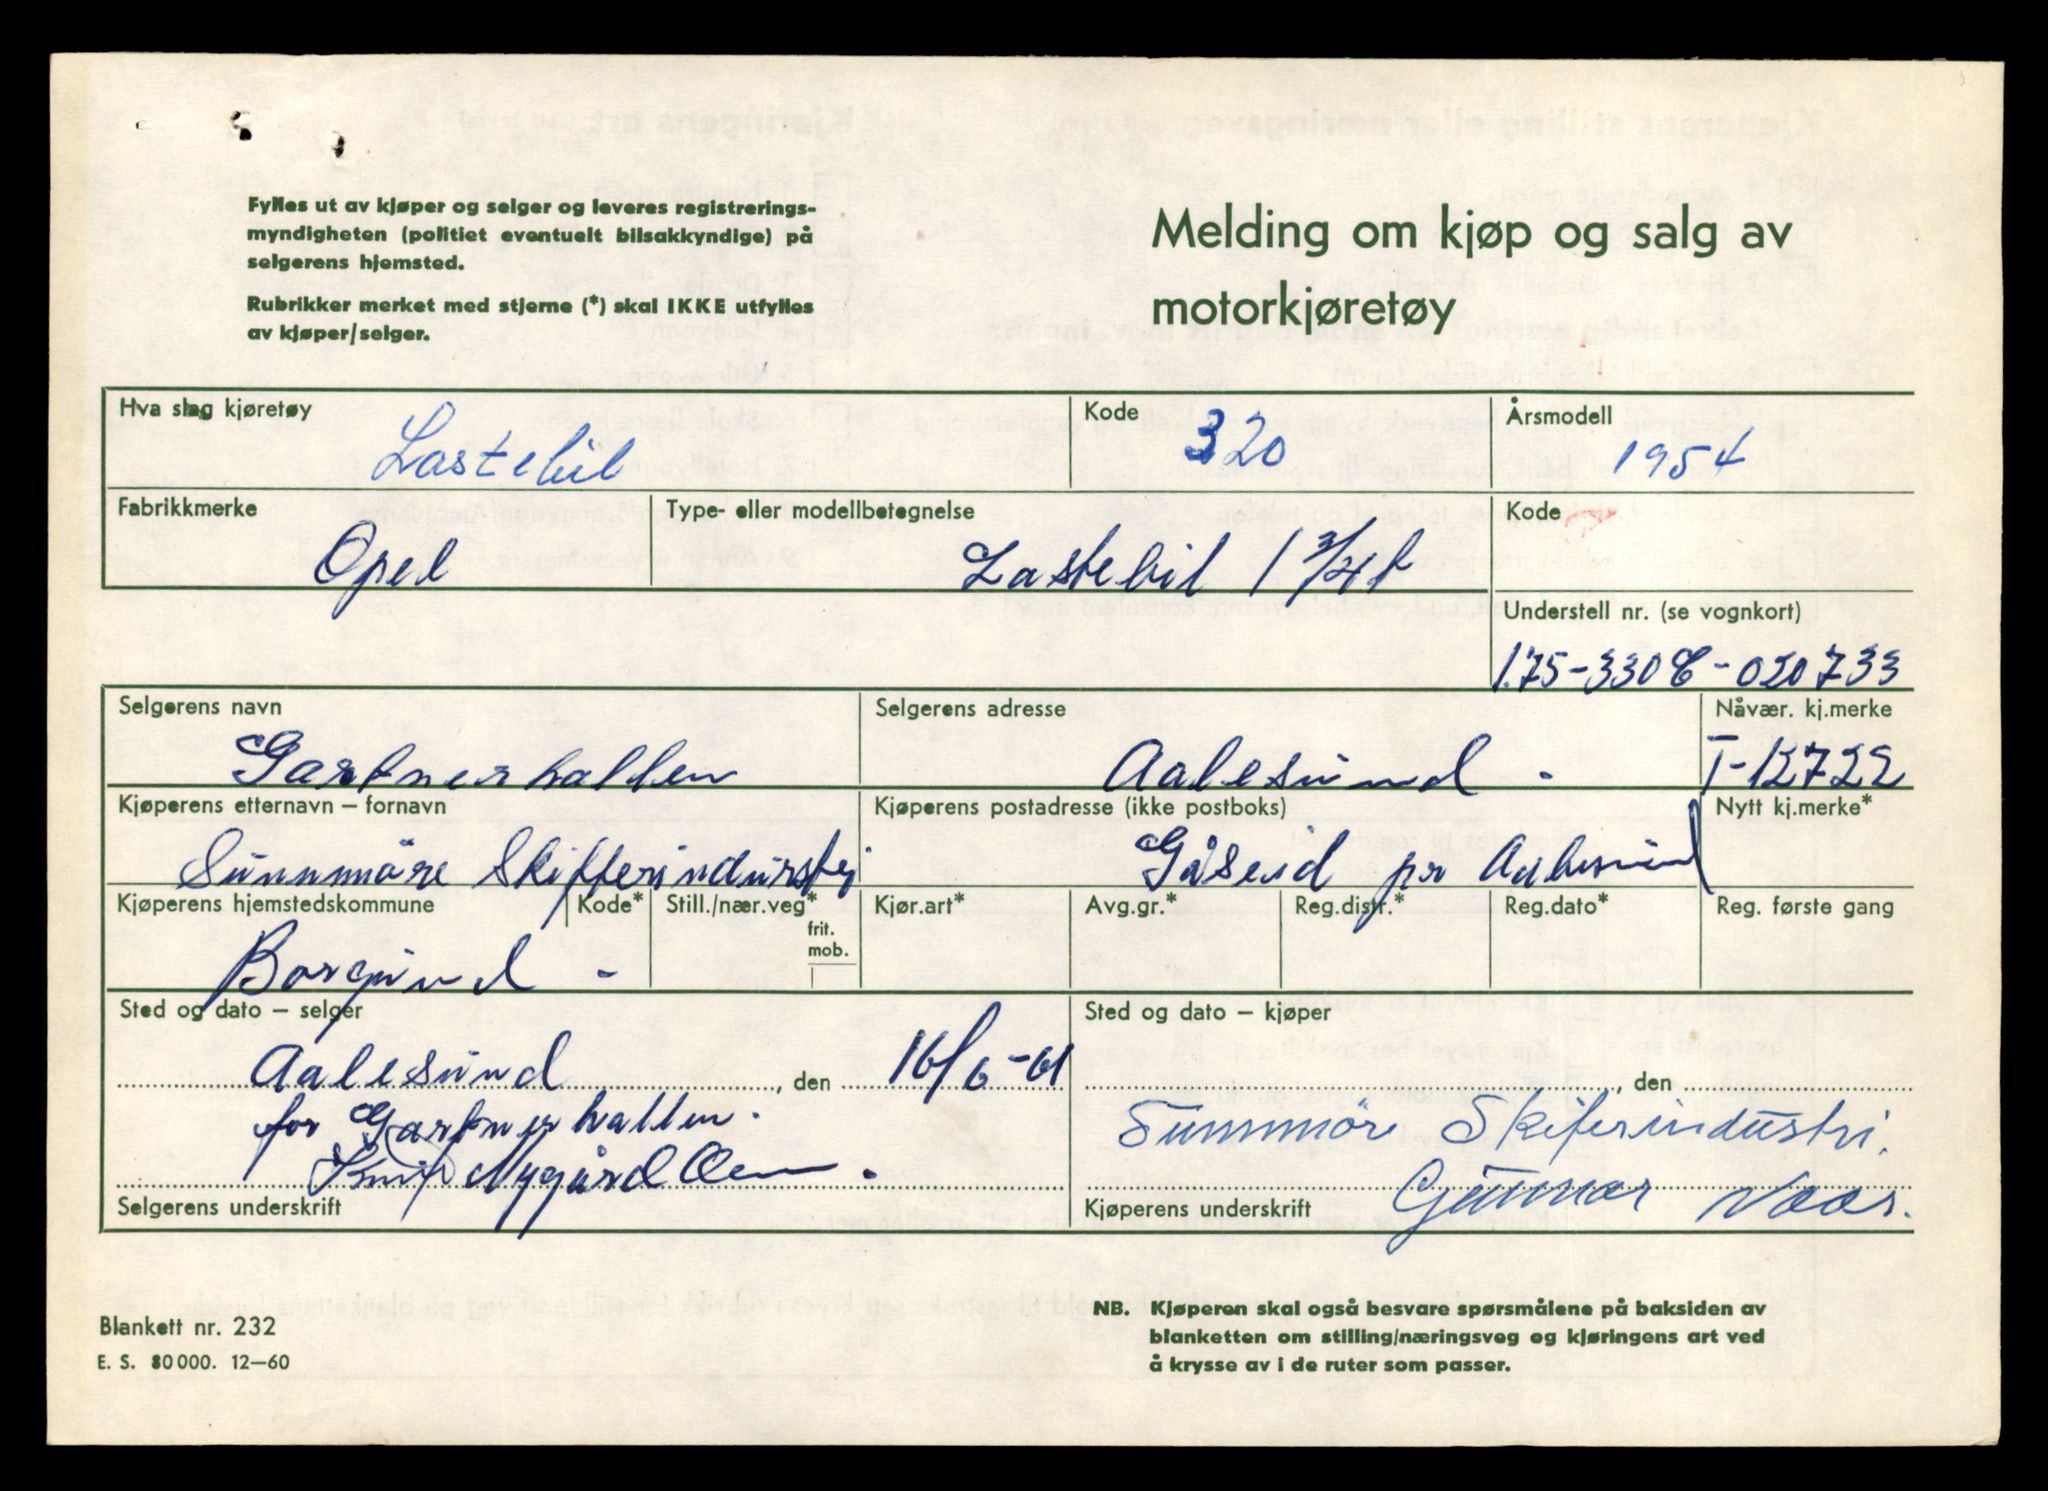 Fylles ut av kjøper og selger og leveres registrerings-
myndigheten (politiet eventuelt bilsakkyndige) på
selgerens hjemsted.
Rubrikker merket med stjerne (*) skal IKKE utfylles
av kjøper/selger.
Melding om kjøp og salg av
motorkjøretøy
Hva slag kjøretøy Kode Årsmodell
Lastebil 320 1954
Fabrikkmerke Type- eller modellbetegnelse Kode
Opel Lastebil 1 3/4 t
Understell nr. (se vognkort)
1.75-330 -020733
Selgerens navn Selgerens adresse Nåvær. kj.merke
Gartnerhallen Aalesund - T-12722
Kjøperens etternavn – fornavn Kjøperens postadresse (ikke postboks) Nytt kj.merke*
Sunnmöre Skifferindustri Gåseid pr Aalesund
Kjøperens hjemstedskommune Kode* Still./nær.veg* Kjør.art* Avg.gr.* Reg.distr.* Reg.dato* Reg. første gang
frit.
mob.
Borgund -
Sted og dato – selger Sted og dato – kjøper
Aalesund , den 16/6-61 , den
for Gartnerhallen. Sunnmöre Skiferindustri.
Knut Nygård Gunnar
Selgerens underskrift Kjøperens underskrift
Blankett nr. 232
E. S. 80000. 12–60
NB. Kjøperen skal også besvare spørsmålene på baksiden av
blanketten om stilling/næringsveg og kjøringens art ved
å krysse av i de ruter som passer.